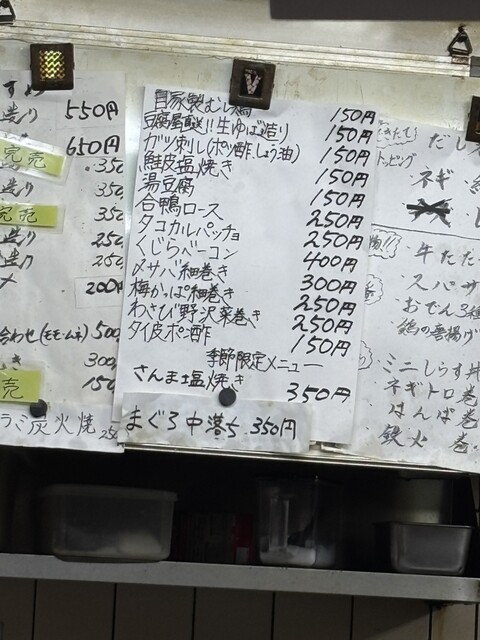 造り 550円
650円
完売 350
造り 350
完売 350
造り 250
造り 250
200円
合わせ(モモ・ムネ) 500
き 300
売 150
ラミ炭火焼 250
自家製むし鶏 150円
豆腐屋直送!!生ゆば造り 150円
ガツ刺し(ポン酢、しょう油) 150円
鮭皮塩焼き 150円
湯豆腐 150円
合鴨ロース 250円
タコカルパッチョ 250円
くじらベーコン 400円
〆サバ細巻き 300円
梅かっぱ細巻き 250円
わさび野沢菜巻き 250円
タイ皮ポン酢 150円
季節限定メニュー
さんま塩焼き 350円
まぐろ中落ち 350円
だし
トッピング
ネギ
牛たた
スパサ
おでん3種
鶏の唐揚げ
ミニしらす丼
ネギトロ巻
はんぱ巻
鉄火巻